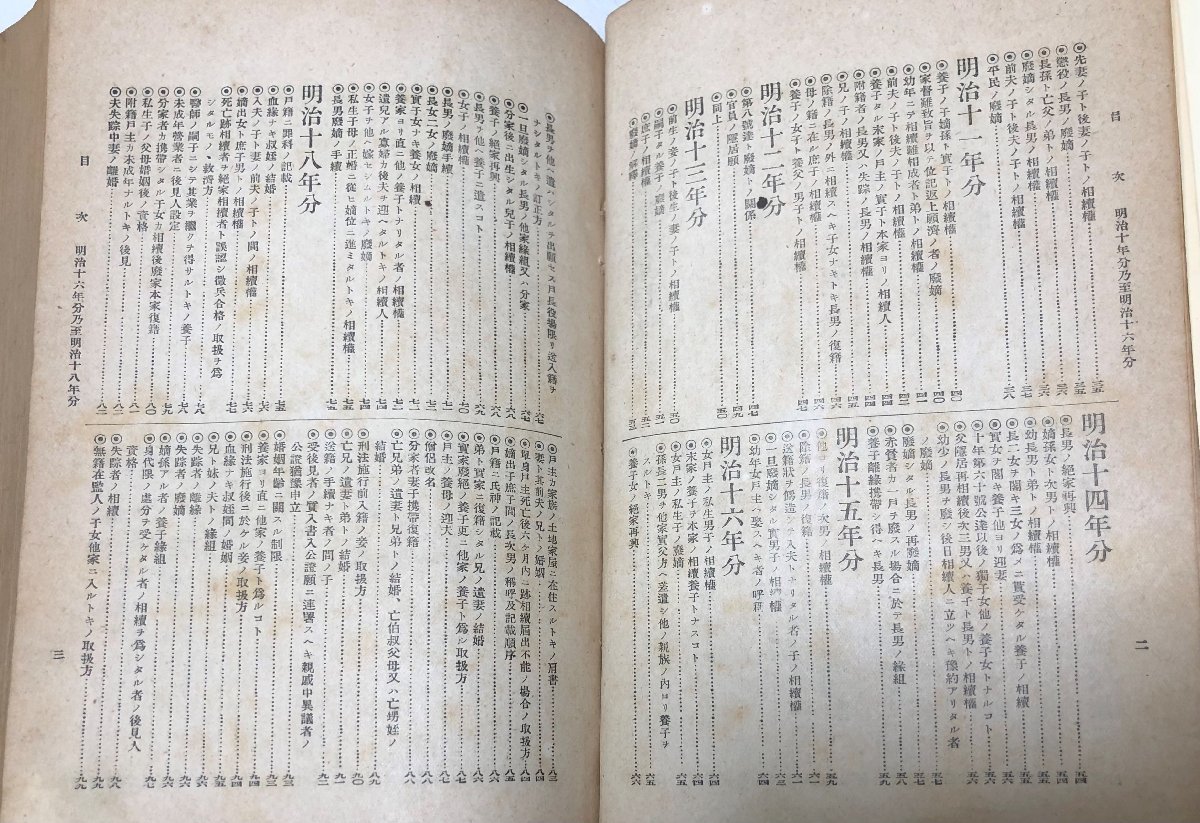 目次　明治十年分乃至明治十六年分
◎先妻ノ子ト後妻ノ子トノ相續權……三五
◎懲役ノ長男ノ廢嫡……三五
◎長孫ト亡父ノ弟トノ相續權……三六
◎廢嫡シタル長男ノ相續權……三六
◎前夫ノ子ト後夫ノ子トノ相續權……三八
◎平民ノ廢嫡……三九
明治十一年分
◎養子ノ子嫡孫ト實子トノ相續權……四〇
◎家督難致旨ヲ以テ位記返上願濟ノ者ノ廢嫡
◎幼年ニテ相續難相成者ト弟トノ相續權
◎前夫ノ子ト後夫ノ子トノ相續權
◎養子タル末家ノ戸主ノ實子ト本家ヨリノ相續人
◎附籍者ノ長男又ハ失踪ノ長男ノ相續權
◎兄ノ子ノ相續權
◎除籍ノ長男ノ外ニ相續スヘキ子女ナキトキ長男ノ復籍
◎母ノ籍ニ在ル庶子ノ相續權
◎養子ノ女子ト養父ノ男子トノ相續權……四七
明治十二年分
◎第八號達ト廢嫡ノ關係……四七
◎官員ノ隱居願……四九
◎同上……五〇
明治十三年分
◎前生ノ妾ノ子ト後生ノ妻ノ子トノ相續權……五〇
◎嗣子タル養子ノ廢嫡……五一
◎庶子ノ相續權
◎廢嫡ノ解釋
明治十四年分
◎長男ノ絕家再興……五四
◎嫡孫女ト次男トノ相續權……五四
◎幼年長男ト弟トノ相續權……五四
◎長二女ヲ閣キ三女ノ爲メニ貰受ケタル養子ノ相續……五五
◎實女ヲ閣キ養子他ヨリ迎妻……五五
◎十年第六十號公達以後ノ獨子女他ノ養子女トナルコト……五六
◎父隱居再相續後次三男又ハ養子ト長男トノ相續權……五六
◎幼少ノ長男ヲ廢シ後日相續人ニ立ツヘキ豫約アリタル者ノ廢嫡……五七
◎廢嫡シタル長男ノ再廢嫡……五七
◎赤貧者カ一戸ヲ廢スル場合ニ於テ長男ノ緣組……五八
◎養子離緣携帶シ得ヘキ長男……五九
明治十五年分
◎他ヨリ復籍ノ次男ノ相續權……五九
◎除籍ノ長男ノ復籍……六一
◎送籍狀ヲ僞造シ入夫トナリタル者ノ子ノ相續權……六一
◎一旦廢嫡シタル實男子ノ相續權……六三
◎幼年女戸主ヘ娶スヘキ者ノ呼稱……六四
明治十六年分
◎女戸主ノ私生男子ノ相續權……六四
◎末家ノ養子ヲ本家ノ相續養子トナスコト……六四
◎女戸主ノ私生子ノ廢嫡……六五
◎孫長二男ヲ他家實父方ヘ差遣シ他ノ親族ノ內ヨリ養子ヲスルトキ……六五
◎養子子女ノ絕家再興……六六
二
◎長男ヲ他ヘ遣ハシタルヲ出願セス戸長役場限リ送入籍ヲナシタルトキノ訂正方……六七
◎一旦廢嫡シタル長男ノ他家緣組又ハ分家……六七
◎分家後ニ出生シタル兒子ノ相續權……六八
◎養子ノ絕家再興……六八
◎長男ヲ他ヘ養子ニ遣スコト……六九
◎女子ノ相續權……七〇
◎長男ノ廢嫡手續……七〇
◎長女二女ノ廢嫡……七一
◎實子女ナキ養女ノ相續……七二
◎養家ヨリ直ニ他ノ養子トナリタル者ノ相續權……七二
◎遺兒アル寡婦カ後夫ヲ迎ヘタルトキノ相續人……七四
◎女子ヲ他ヘ嫁セシムルトキノ廢嫡……七四
◎私生子母ノ正婚ニ從ヒ嫡位ニ進ミタルトキノ相續權……七五
◎長男廢嫡ノ手續……七五
明治十八年分
◎戸籍ニ罪科ノ記載……七五
◎血緣ナキ叔姪ノ結婚……七六
◎入夫ノ子ト妻ノ前夫ノ子トノ間ノ相續權……七六
◎嫡出女ト庶子男トノ相續權……七七
◎死亡跡相續者ヲ絕家相續者ト誤認シ徵兵合格ノ取扱ヲ爲シタルモノヽ救濟方……七七
◎醫師ノ嗣子ニシテ其業ヲ繼クヲ得サルトキノ養子……七八
◎未成年營業者ニ後見人設定……七九
◎分家者カ携帶シタル子女カ相續後廢家本家復籍……七九
◎私生子ノ父母婚姻後ノ資格……八〇
◎附籍戸主カ未成年ナルトキノ後見……八一
◎夫失踪中妻ノ離婚……八二
目次　明治十六年分乃至明治十八年分
◎戸主カ家族ノ土地家屋ニ在住スルトキノ肩書……八三
◎妻ト其前夫ノ兄トノ婚姻……八四
◎單身戸主死亡後六ヶ月內ニ跡相續屆出不能ノ場合ノ取扱方……八四
◎嫡出子庶子間ノ長次男ノ稱呼及記載順序……八五
◎戸籍ニ氏神ノ記載……八六
◎弟ト實家ニ復籍シタル兄ノ遺妻ノ結婚……八六
◎實家廢絕ノ養子更ニ他家ノ養子ト爲ル取扱方……八七
◎戸主ノ養母ノ迎夫……八七
◎僧侶改名……八八
◎分家者妻子携帶復籍……八八
◎亡兄弟ノ遺妻ト兄弟トノ結婚、亡伯叔父母又ハ亡甥姪ノ結婚……八九
◎刑法施行前入籍ノ妾ノ取扱方……九〇
◎亡兄ノ遺妻ト弟トノ結婚……九一
◎送籍ノ手續ナキ者ノ間ノ子……九一
◎受後見者ノ賣買書入公證願ニ連署スヘキ親戚中異議者ノ公證猶豫申立……九二
◎婚姻年齡ニ關スル制限……九三
◎養家ヨリ直ニ他家ノ養子ト爲ルコト……九三
◎刑法施行後ニ於ケル妾ノ取扱方……九四
◎血緣ノナキ叔姪間ノ婚姻……九四
◎兄ト妹ノ夫トノ緣組……九五
◎失踪者ノ離緣……九五
◎失踪者ノ廢嫡……九六
◎嫡孫アル者ノ養子緣組……九六
◎身代限ノ處分ヲ受ケタル者ノ相續ヲ爲シタル者ノ後見人資格……九七
◎失踪者ノ相續……九八
◎無籍在監人ノ子女他家ニ入ルトキノ取扱方……九九
三